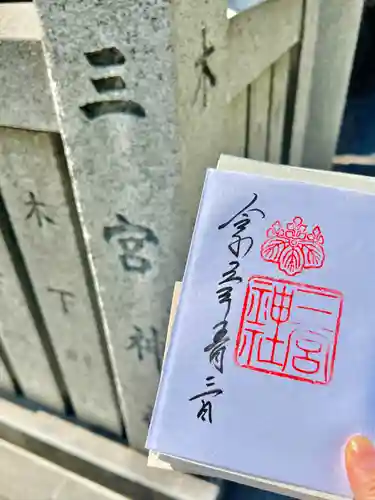 三宮神
木
木下
令和五年壱月三日
三宮
神社